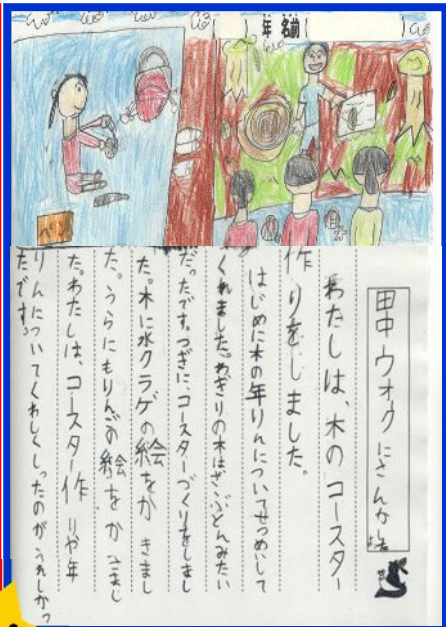 年 名前
田中ウオクにさんか
わたしは、木のコースター
作りをしました。
はじめに木の年りんについてせつめいして
くれました。わぎりの木はざぶとんみたい
だったです。つぎに、コースターづくりをしまし
た。木に水クラゲの絵をかきまし
た。うらにもりんごの絵をかきまし
た。わたしは、コースター作りや年
りんについてくわしくしったのがうれしかっ
たです。